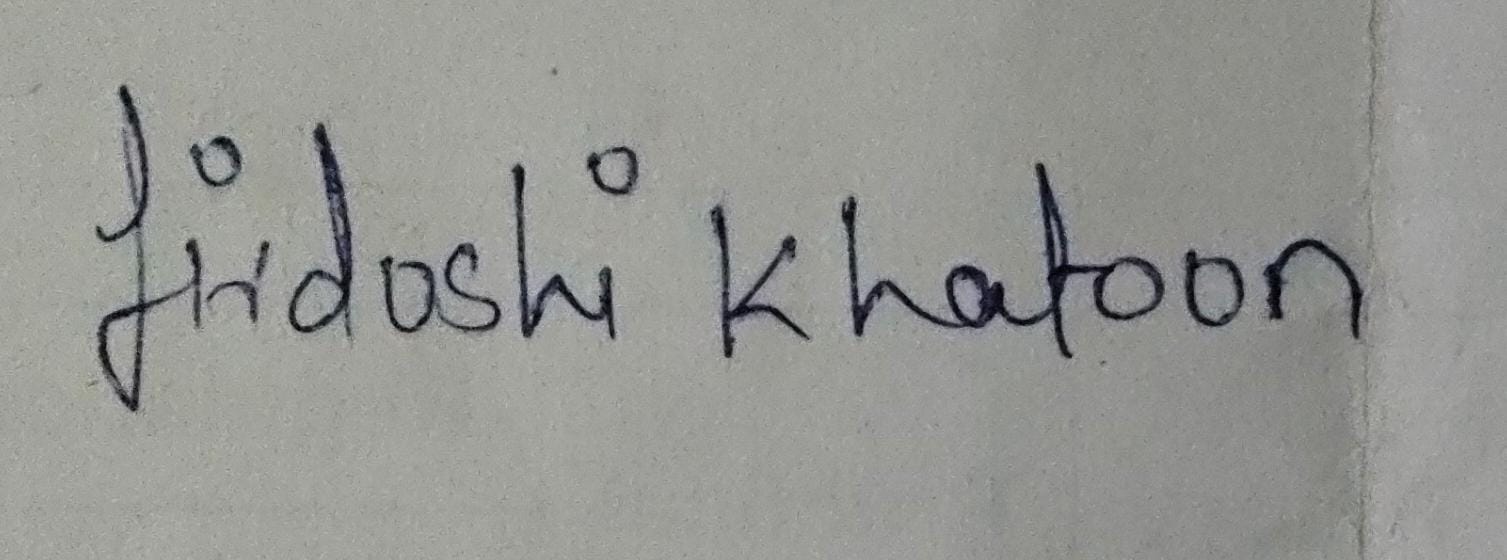 firdoshi khatoon